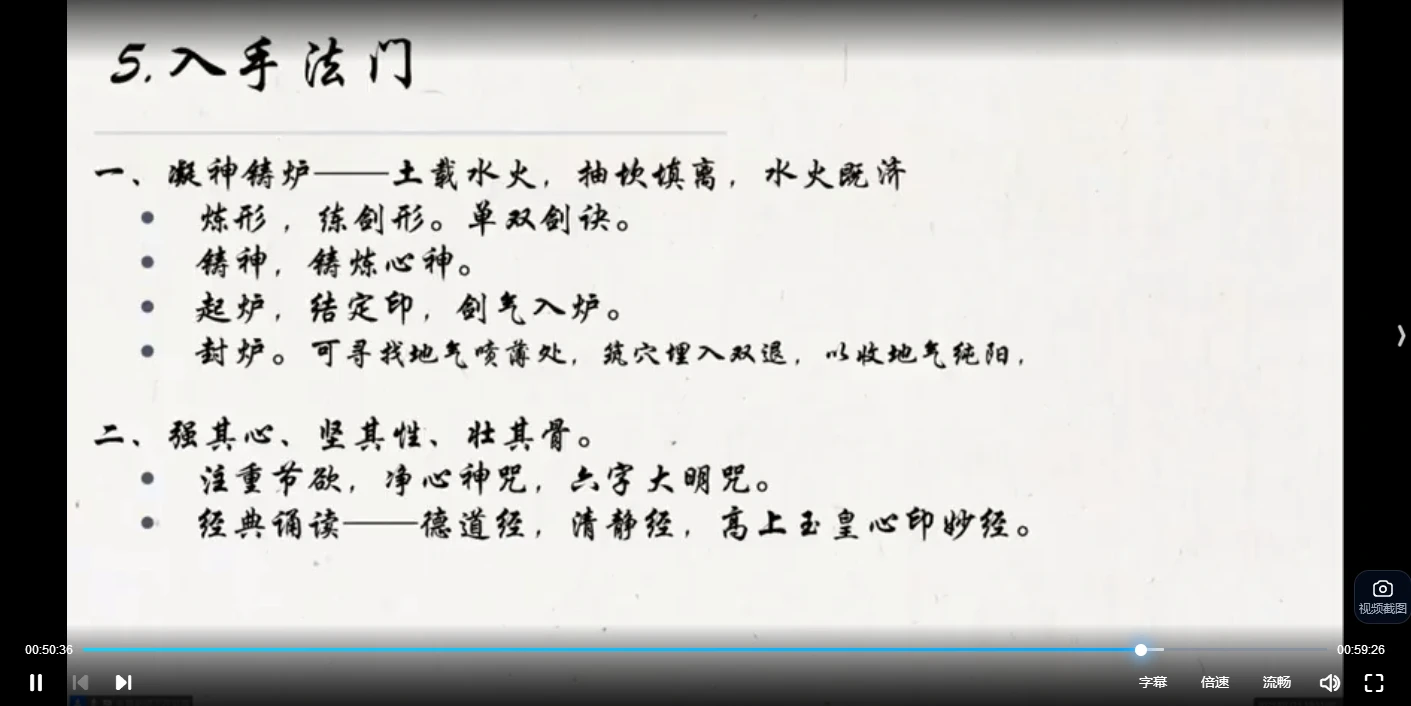 5.入手法门
一、凝神铸炉——土载水火，抽坎填离，水火既济
• 炼形，练剑形。单双剑诀。
• 铸神，铸炼心神。
• 起炉，结定印，剑气入炉。
• 封炉。可寻找地气喷薄处，筑穴埋入双退，以收地气纯阳，
二、强其心、坚其性、壮其骨。
• 注重节欲，净心神咒，六字大明咒。
• 经典诵读——德道经，清静经，高上玉皇心印妙经。
视频截图
00:50:36
00:59:26
字幕 倍速 流畅